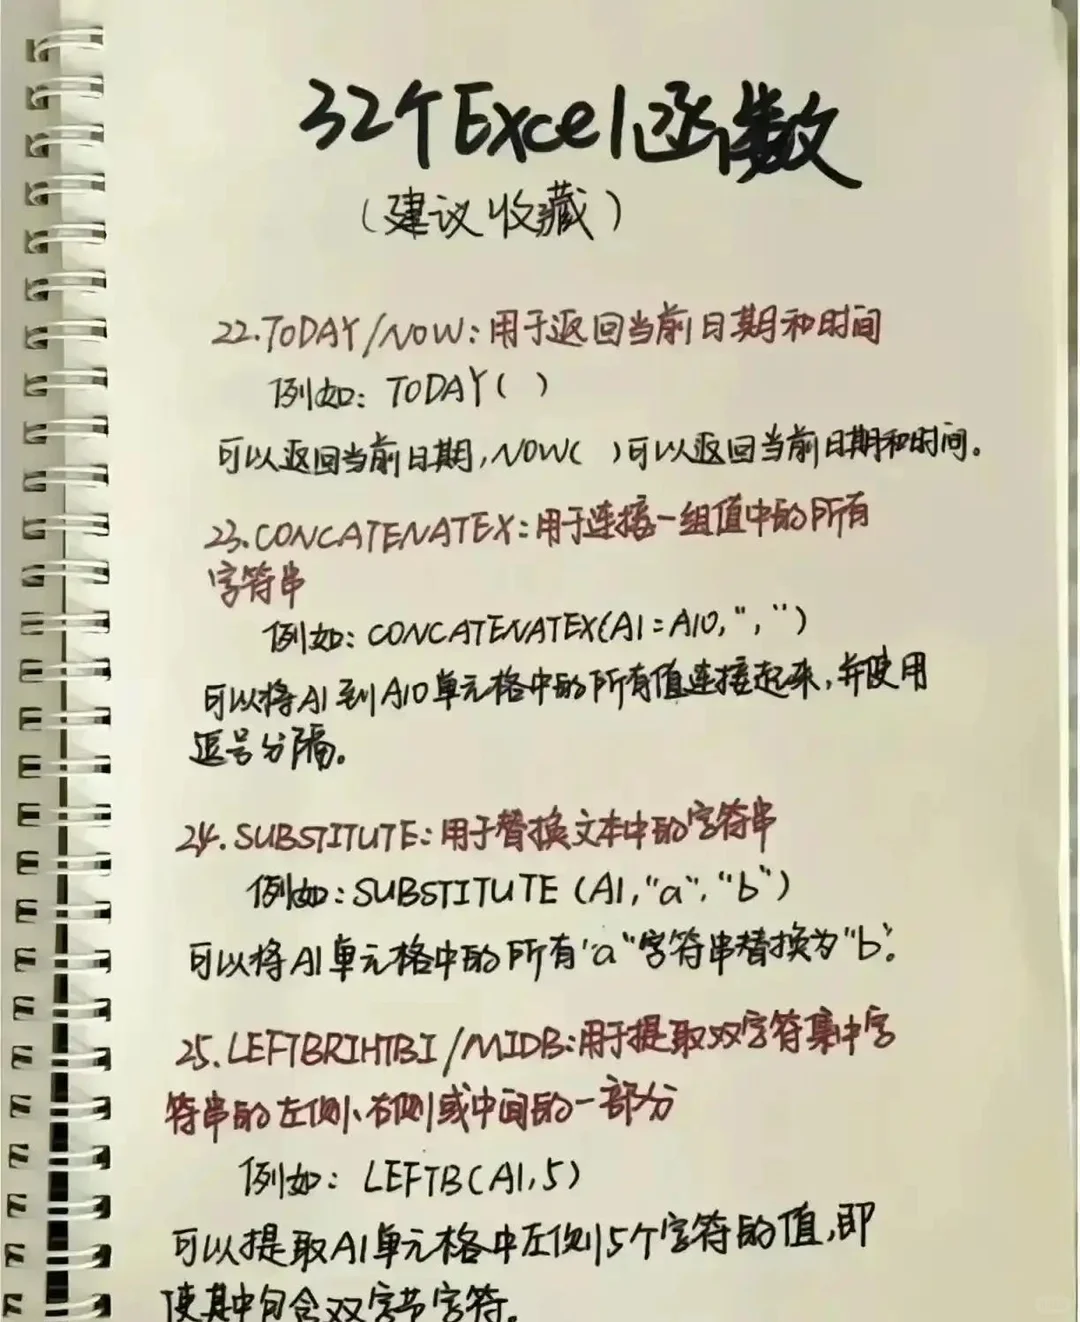 32个Excel函数
（建议收藏）
22.TODAY/NOW：用于返回当前日期和时间
例如：TODAY( )
可以返回当前日期，NOW( )可以返回当前日期和时间。
23.CONCATENATEX：用于连接一组值中的所有
字符串
例如：CONCATENATEX(A1:A10,",")
可以将A1到A10单元格中的所有值连接起来，并使用
逗号分隔。
24.SUBSTITUTE：用于替换文本中的字符串
例如：SUBSTITUTE (A1,"a","b")
可以将A1单元格中的所有"a"字符串替换为"b"。
25.LEFTBRIHTBI/MIDB：用于提取双字符集中字
符串的左侧、右侧或中间的一部分
例如：LEFTB(A1,5)
可以提取A1单元格中左侧5个字符的值，即
使其中包含双字节字符。